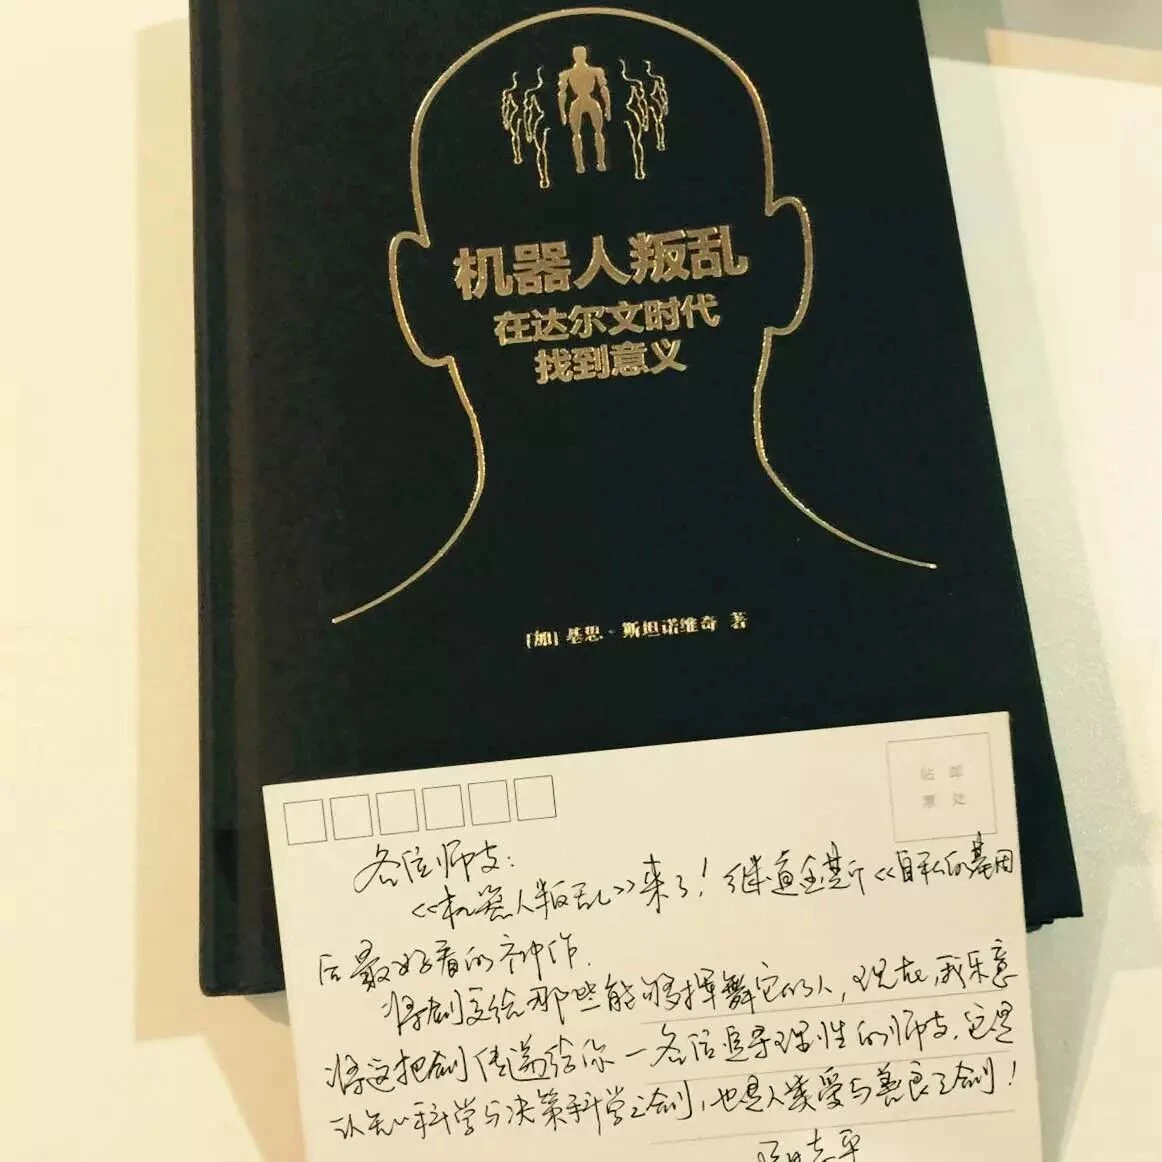 机器人叛乱
在达尔文时代
找到意义
[加] 基思·斯坦诺维奇 著
贴 邮
票 处
各位师友:
《机器人叛乱》来了! 继道金斯《自私的基因
后最好看的神作.
将剑交给那些能够挥舞它的人, 现在, 我乐意
将这把剑传递给你—各位追寻理性的师友. 这是
认知科学与决策科学之剑, 也是人类爱与善良之剑!
志平